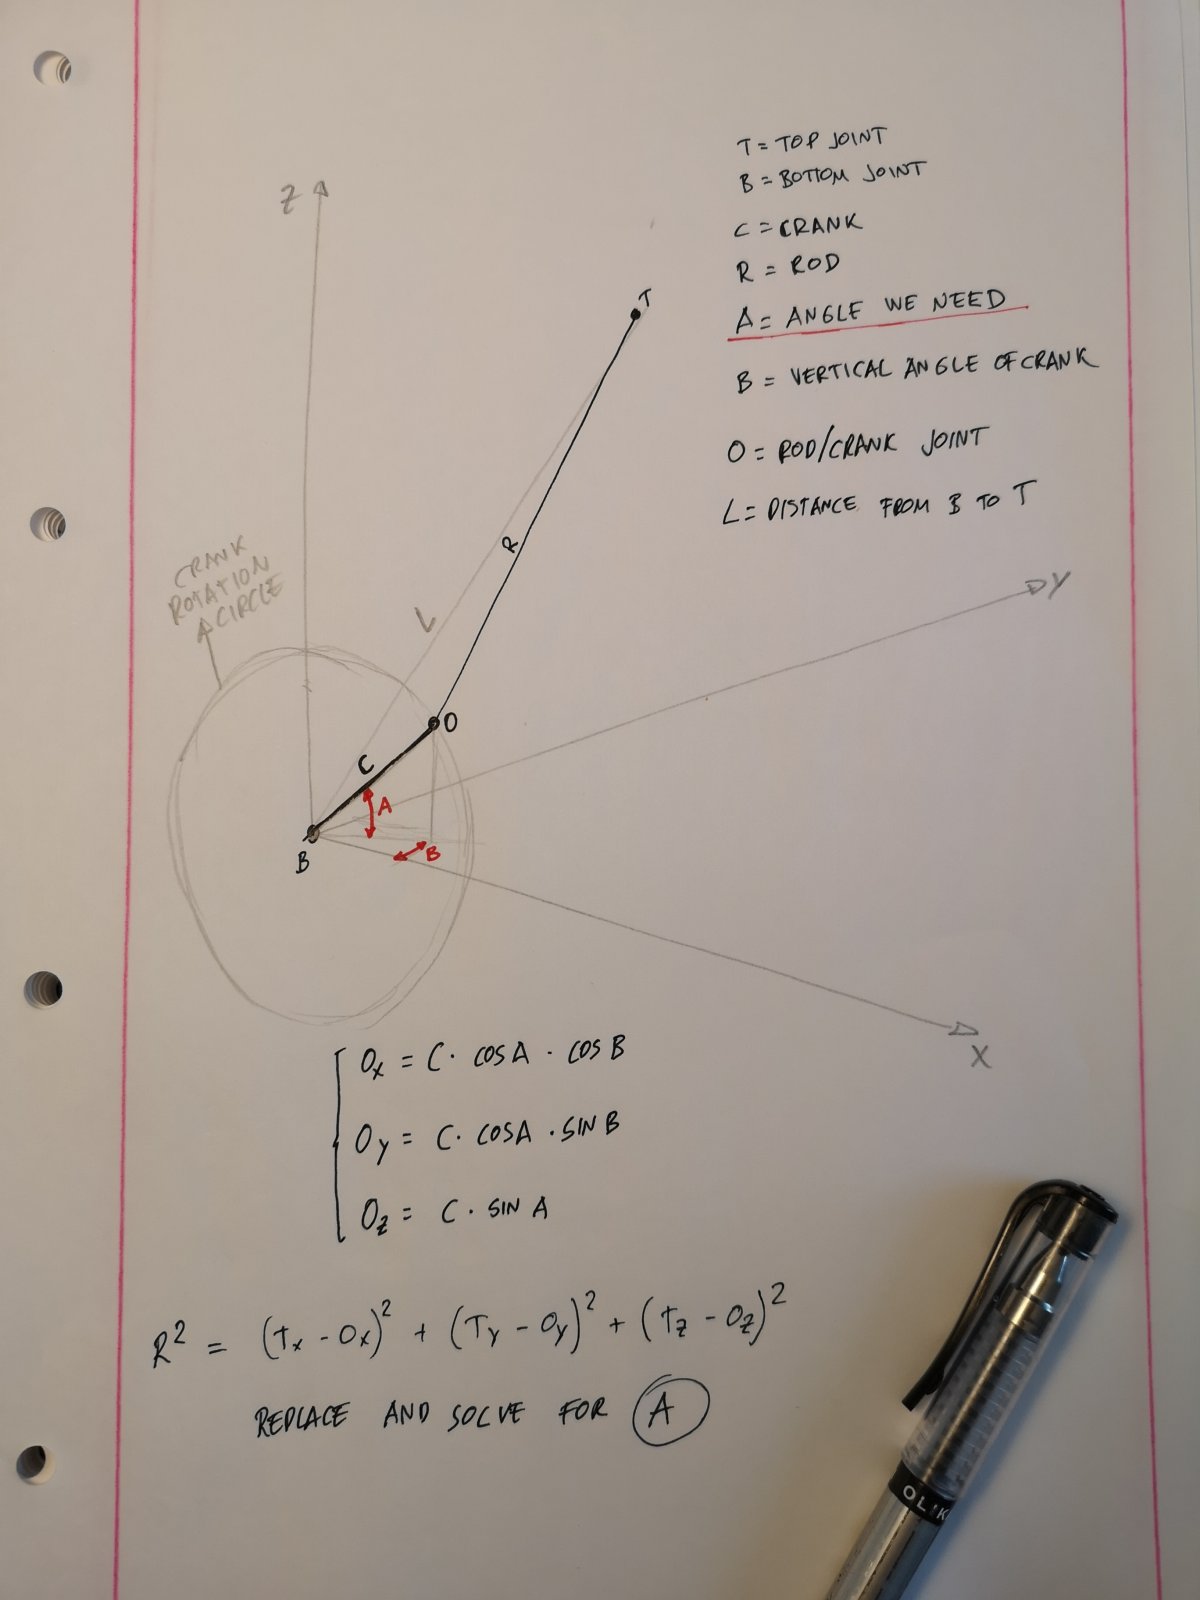 T = TOP JOINT
B = BOTTOM JOINT
C = CRANK
R = ROD
A = ANGLE WE NEED
B = VERTICAL ANGLE OF CRANK
O = ROD/CRANK JOINT
L = DISTANCE FROM B TO T
Z
T
R
L
CRANK
ROTATION
CIRCLE
Y
O
C
A
B
B
X
Ox = C · COSA · COSB
Oy = C · COSA · SINB
Oz = C · SIN A
R² = (Tx - Ox)² + (Ty - Oy)² + (Tz - Oz)²
REPLACE AND SOLVE FOR A
OLIK